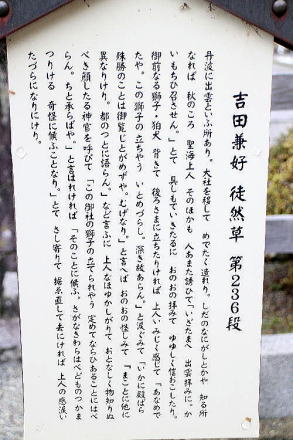 吉田兼好 徒然草 第236段
丹波に出雲といふ所あり。大社を移して めでたく造れり。しだのなにがしとかや 知る所
なれば 秋のころ 聖海上人 そのほかも 人あまた誘ひて「いざたまへ 出雲拝みに。か
いもちひ召させん。」とて 具しもていきたるに おのおの拝みて ゆゆしく信おこしたり。
御前なる獅子・狛犬 背きて 後ろさまに立ちたりければ 上人いみじく感じて「あなめで
たや。この獅子の立ちやう いとめづらし。深き故あらん。」と涙ぐみて「いかに殿ばら
殊勝のことは御覧じとがめずや。むげなり。」と言へば おのおの怪しみて 「まことに他に
異なりけり。都のつとに語らん。」など言ふに 上人なほゆかしがりて おとなしく物知りぬ
べき顔したる神官を呼びて「この御社の獅子の立てられやう 定めてならひあることにはべ
らん。ちと承らばや。」と言はれければ 「そのことに候ふ。さがなきわらはべどものつかま
つりける 奇怪に候ふことなり。」とて さし寄りて 据ゑ直して去にければ 上人の感涙い
たづらになりにけり。